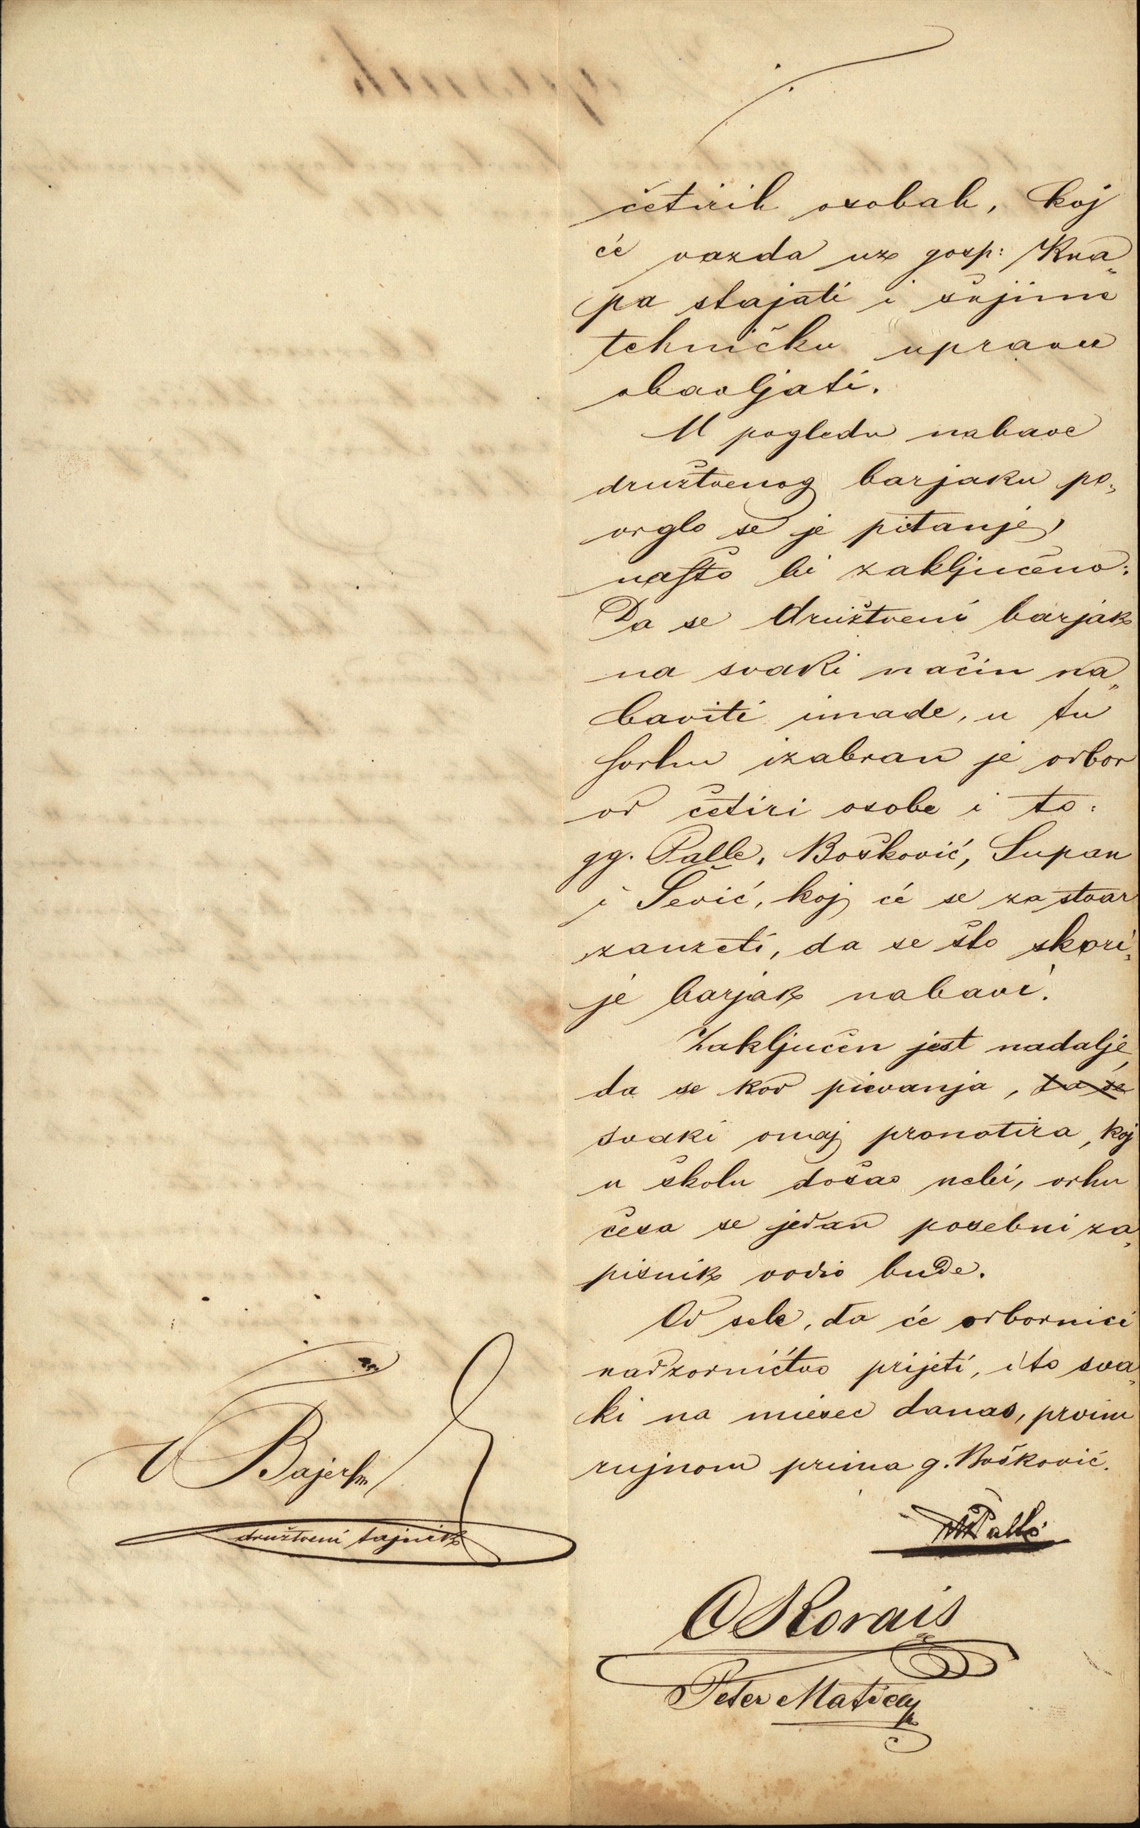 četirih osobah, koj
će vazda uz gosp: Kna„
pa stajati i šnjime
tehničku upravu
obavljati.
U pogledu nabave
družtvenog barjaku po„
vrglo se je pitanje,
našto bi zaključeno:
Da se družtveni barjak
na svaki način na„
baviti imade, u tu
svrhu izabran je odbor
od četiri osobe i to:
gg. Palle, Bošković, Supan
i Šević, koj će se za stvar
zauzeti, da se što skori„
je barjak nabavi.
Zaključen jest nadalje,
da se kod pievanja, da se
svaki onaj pronotira, koj
u školu došao nebi, vrhu
česa se jedan posebni za„
pisnik vodio bude.
Od sele, da će odbornici
nadzornićtvo prijeti, i to sva„
ki na miesec danas, prvim
rujnom prima g. Bošković.
Palle
Bajer
družtveni tajnik
O Korais
Peter Matica